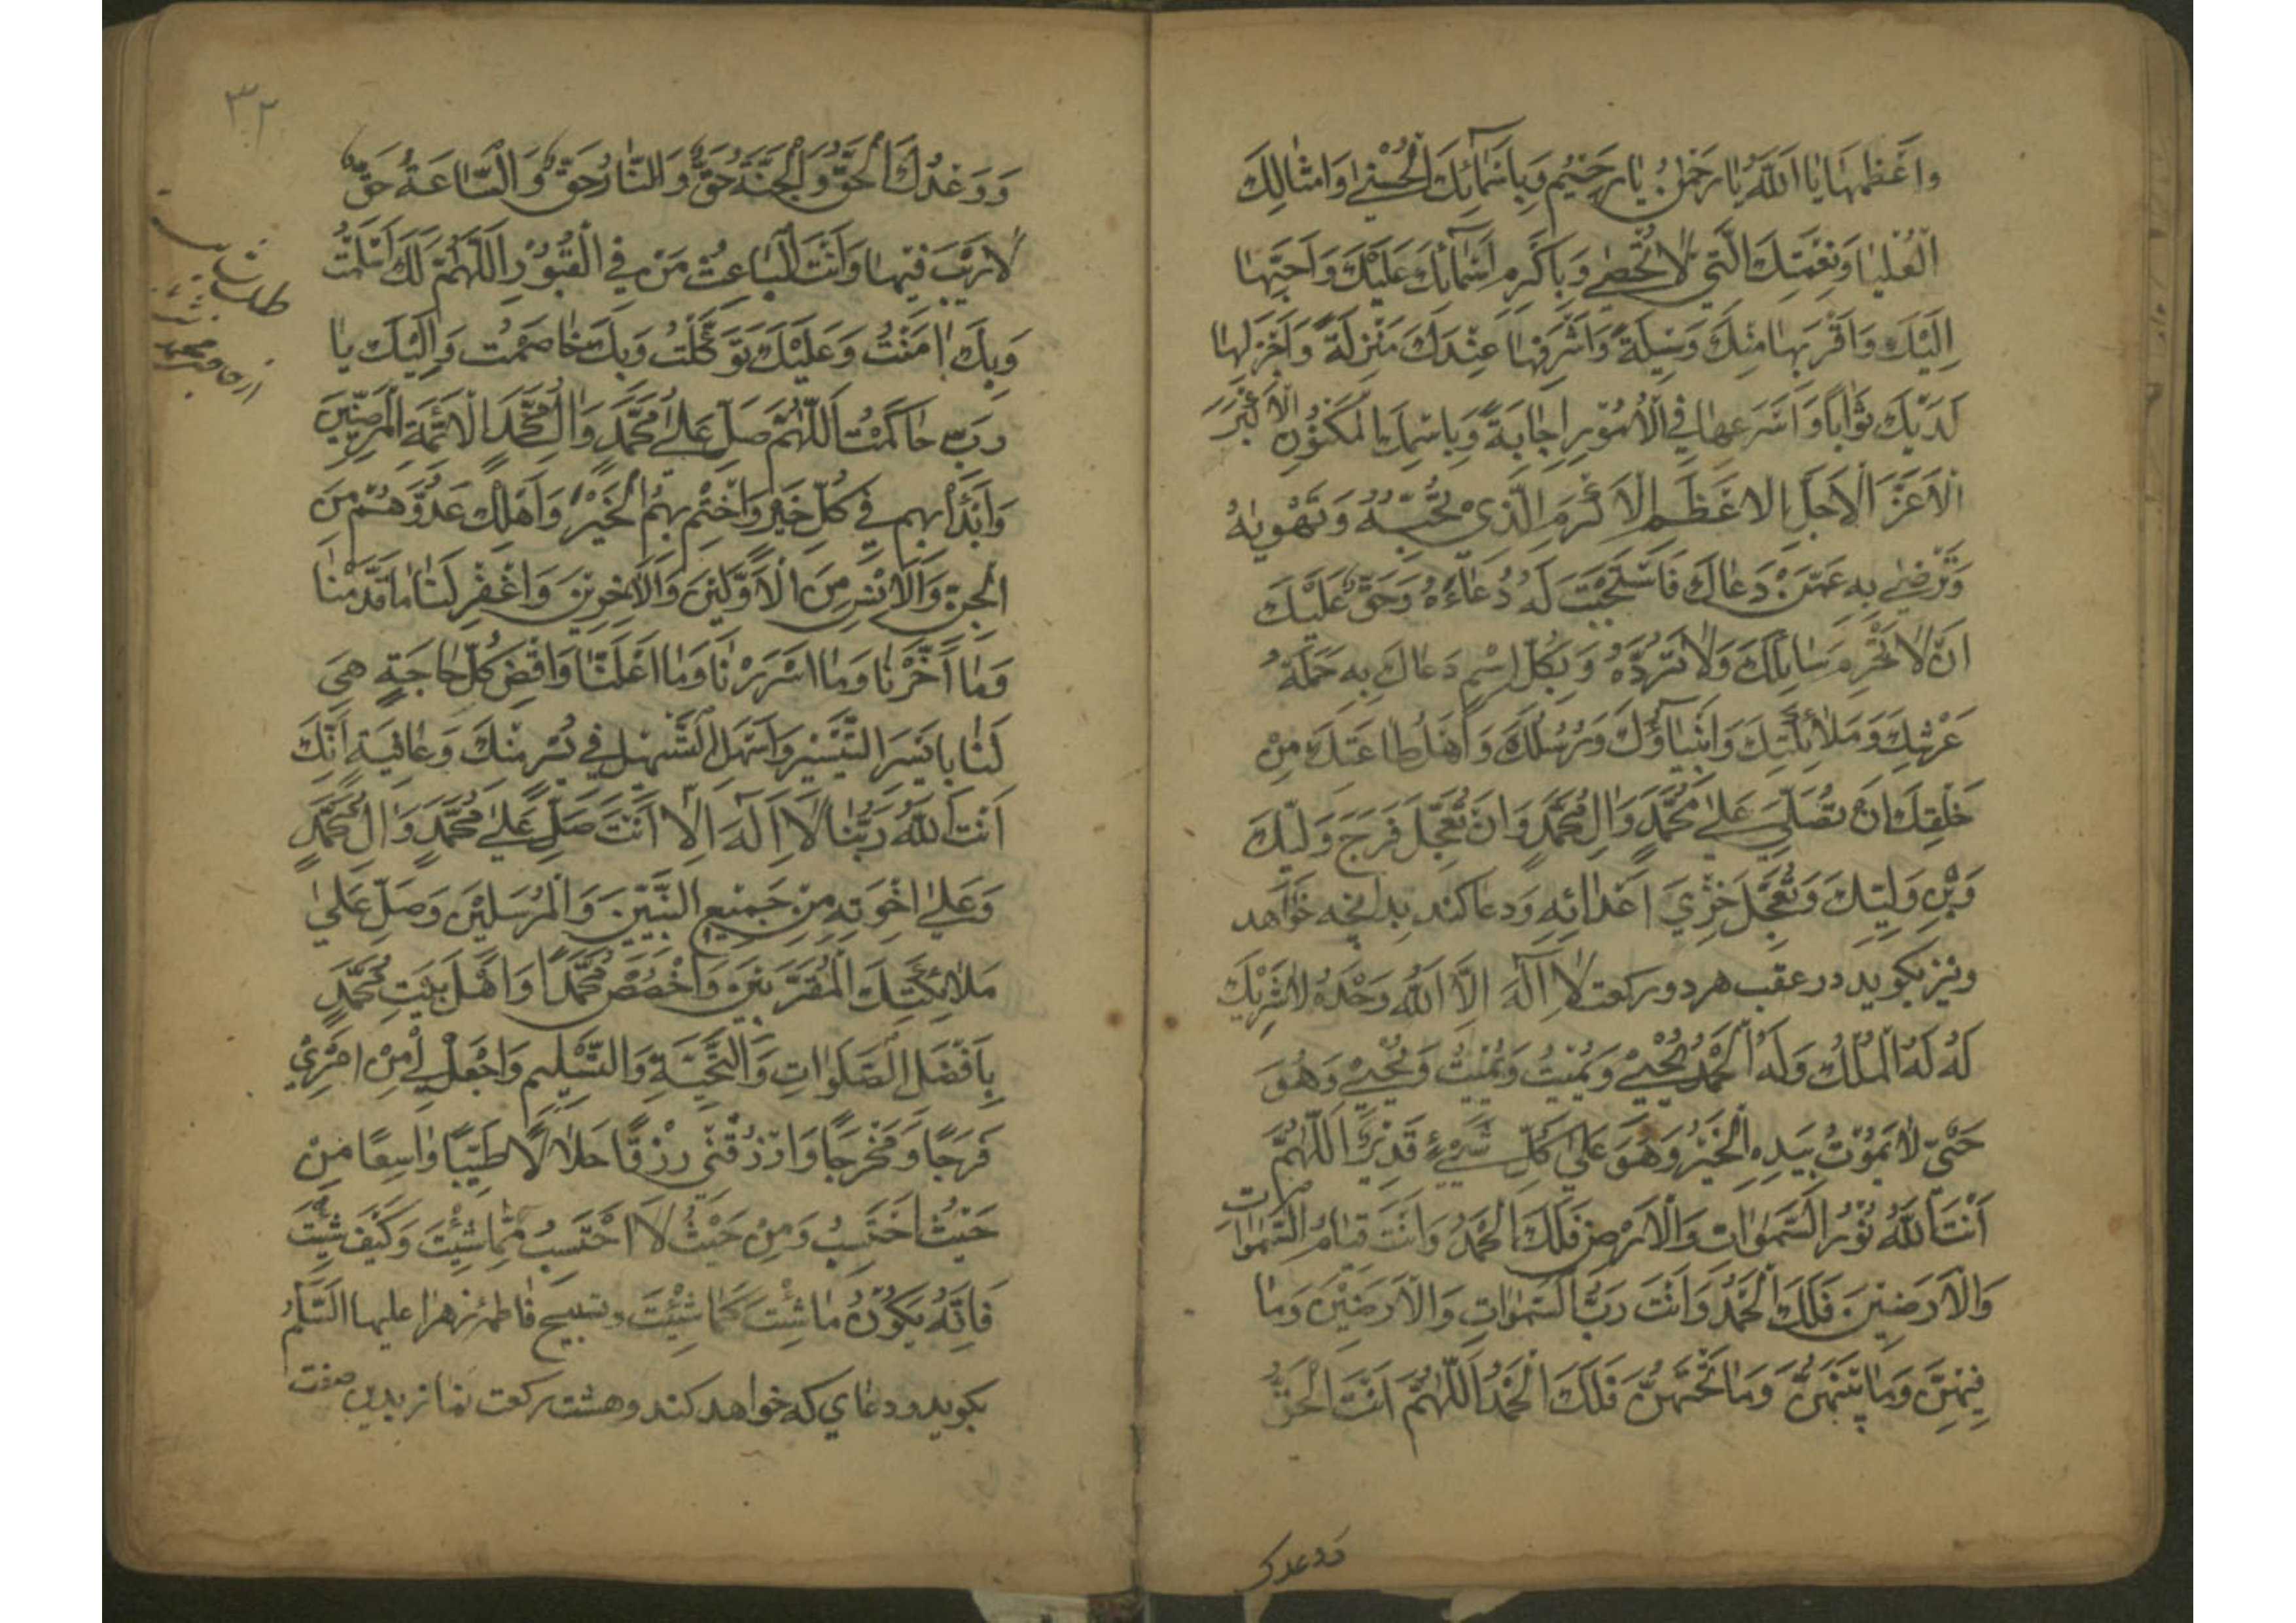 وَاَعْظَمِهَا يَا اَللّٰهُ يَا رَحْمٰنُ يَا رَحِيْمُ وَبِاَسْمَآئِكَ الْحُسْنٰى وَاَمْثَالِكَ
الْعُلْيَا وَنِعْمَتِكَ الَّتِي لَا تُحْصٰى وَبِاَكْرَمِ اَسْمَآئِكَ عَلَيْكَ وَاَحَبِّهَا
اِلَيْكَ وَاَقْرَبِهَا مِنْكَ وَسِيْلَةً وَاَشْرَفِهَا عِنْدَكَ مَنْزِلَةً وَاَجْزَلِهَا
لَدَيْكَ ثَوَابًا وَاَسْرَعِهَا فِي الْاُمُوْرِ اِجَابَةً وَبِاسْمِكَ الْمَكْنُوْنِ الْاَكْبَرِ
الْاَعَزِّ الْاَجَلِّ الْاَعْظَمِ الْاَكْرَمِ الَّذِي تُحِبُّهُ وَتَهْوِيهُ
وَتَرْضٰى بِهِ عَمَّنْ دَعَاكَ فَاسْتَجَبْتَ لَهُ دُعَآءَهُ وَحَقٌّ عَلَيْكَ
اَنْ لَا تَحْرِمَ سَائِلَكَ وَلَا تَرُدَّهُ وَبِكُلِّ اِسْمٍ دَعَاكَ بِهِ حَمَلَةُ
عَرْشِكَ وَمَلَائِكَتِكَ وَاَنْبِيَآؤُكَ وَرُسُلُكَ وَاَهْلُ طَاعَتِكَ مِنْ
خَلْقِكَ اَنْ تُصَلِّيَ عَلٰى مُحَمَّدٍ وَاٰلِ مُحَمَّدٍ وَاَنْ تُعَجِّلَ فَرَجَ وَلِيِّكَ
وَبْنِ وَلِيِّكَ وَتُعَجِّلَ خِزْيَ اَعْدَائِهِ وَدعا كند بدانچه خواهد
ونيز بكويد در عقب هر دو ركعت لَا اِلٰهَ اِلَّا اللّٰهُ وَحْدَهُ لَا شَرِيْكَ
لَهُ لَهُ الْمُلْكُ وَلَهُ الْحَمْدُ يُحْيِيْ وَيُمِيْتُ وَيُمِيْتُ وَيُحْيِيْ وَهُوَ
حَىٌّ لَا يَمُوْتُ بِيَدِهِ الْخَيْرُ وَهُوَ عَلٰى كُلِّ شَيْءٍ قَدِيْرٌ اَللّٰهُمَّ
اَنْتَ اللّٰهُ نُوْرُ السَّمٰوَاتِ وَالْاَرْضِ فَلَكَ الْحَمْدُ وَاَنْتَ قِيَامُ السَّمٰوَات
وَالْاَرَضِيْنَ فَلَكَ الْحَمْدُ وَاَنْتَ رَبُّ السَّمٰوَاتِ وَالْاَرَضِيْنَ وَمَا
فِيْهِنَّ وَمَا بَيْنَهُنَّ وَمَا تَحْتَهُنَّ فَلَكَ الْحَمْدُ اَللّٰهُمَّ اَنْتَ الْحَقُّ
ووعدك
٣٢
وَوَعْدُكَ الْحَقُّ وَالْجَنَّةُ حَقٌّ وَالنَّارُ حَقٌّ وَالسَّاعَةُ حَقٌّ
لَا رَيْبَ فِيْهَا وَاَنْتَ الْبَاعِثُ مَنْ فِي الْقُبُوْرِ اَللّٰهُمَّ لَكَ اَسْلَمْتُ
وَبِكَ اٰمَنْتُ وَعَلَيْكَ تَوَكَّلْتُ وَبِكَ خَاصَمْتُ وَاِلَيْكَ يَا
رَبِّ حَاكَمْتُ اَللّٰهُمَّ صَلِّ عَلٰى مُحَمَّدٍ وَاٰلِ مُحَمَّدٍ الْاَئِمَّةِ الْمَرْضِيِّيْنَ
وَابْدَأْ بِهِمْ فِي كُلِّ خَيْرٍ وَاخْتِمْ بِهِمُ الْخَيْرَ وَاَهْلِكْ عَدُوَّهُمْ مِنَ
الْجِنِّ وَالْاِنْسِ مِنَ الْاَوَّلِيْنَ وَالْاٰخِرِيْنَ وَاغْفِرْ لَنَا مَا قَدَّمْنَا
وَمَا اَخَّرْنَا وَمَا اَسْرَرْنَا وَمَا اَعْلَنَّا وَاقْضِ كُلَّ حَاجَةٍ هِيَ
لَنَا بِاَيْسَرِ التَّيْسِيْرِ وَاَسْهَلِ التَّسْهِيْلِ فِي يُسْرٍ مِنْكَ وَعَافِيَةٍ اِنَّكَ
اَنْتَ اللّٰهُ رَبُّنَا لَا اِلٰهَ اِلَّا اَنْتَ صَلِّ عَلٰى مُحَمَّدٍ وَاٰلِ مُحَمَّدٍ
وَعَلٰى اِخْوَتِهِ مِنْ جَمِيْعِ النَّبِيِّيْنَ وَالْمُرْسَلِيْنَ وَصَلِّ عَلٰى
مَلَائِكَتِكَ الْمُقَرَّبِيْنَ وَاخْصُصْ مُحَمَّدًا وَاَهْلَ بَيْتِ مُحَمَّدٍ
بِاَفْضَلِ الصَّلَوَاتِ وَالتَّحِيَّةِ وَالتَّسْلِيْمِ وَاجْعَلْ لِي مِنْ اَمْرِيْ
فَرَجًا وَمَخْرَجًا وَارْزُقْنِي رِزْقًا حَلَالًا طَيِّبًا وَاسِعًا مِنْ
حَيْثُ اَحْتَسِبُ وَمِنْ حَيْثُ لَا اَحْتَسِبُ مِمَّا شِئْتَ وَكَيْفَ شِئْتَ
فَاِنَّهُ يَكُوْنُ مَا شِئْتَ كَمَا شِئْتَ وتسبيح فاطمه زهرا عليها السَّلَامُ
بكويد ودعاي كه خواهد كند وهشت ركعت نماز بدين صفت